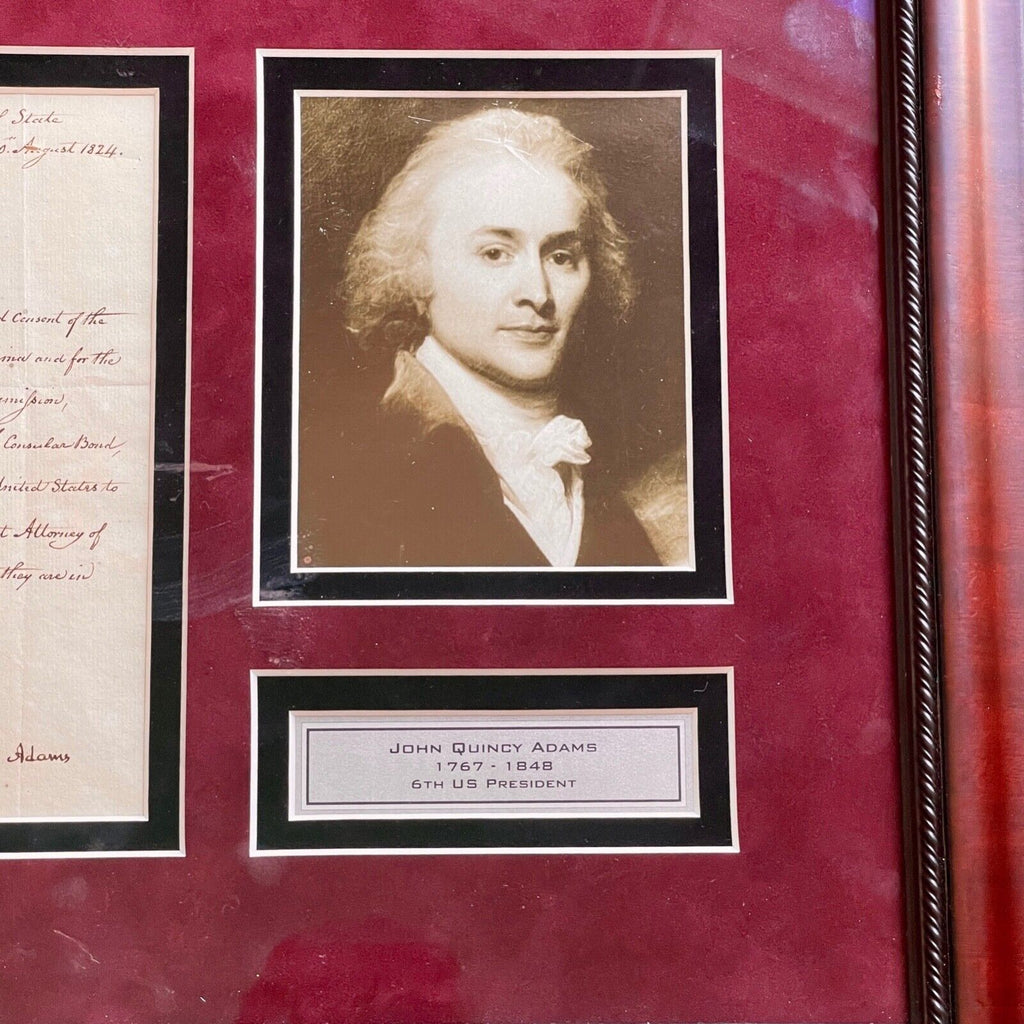 State
August 1824.
Consent of the
and for the
mission,
Consular Bond,
United States to
Attorney of
they are in
Adams
JOHN QUINCY ADAMS
1767 - 1848
6TH US PRESIDENT